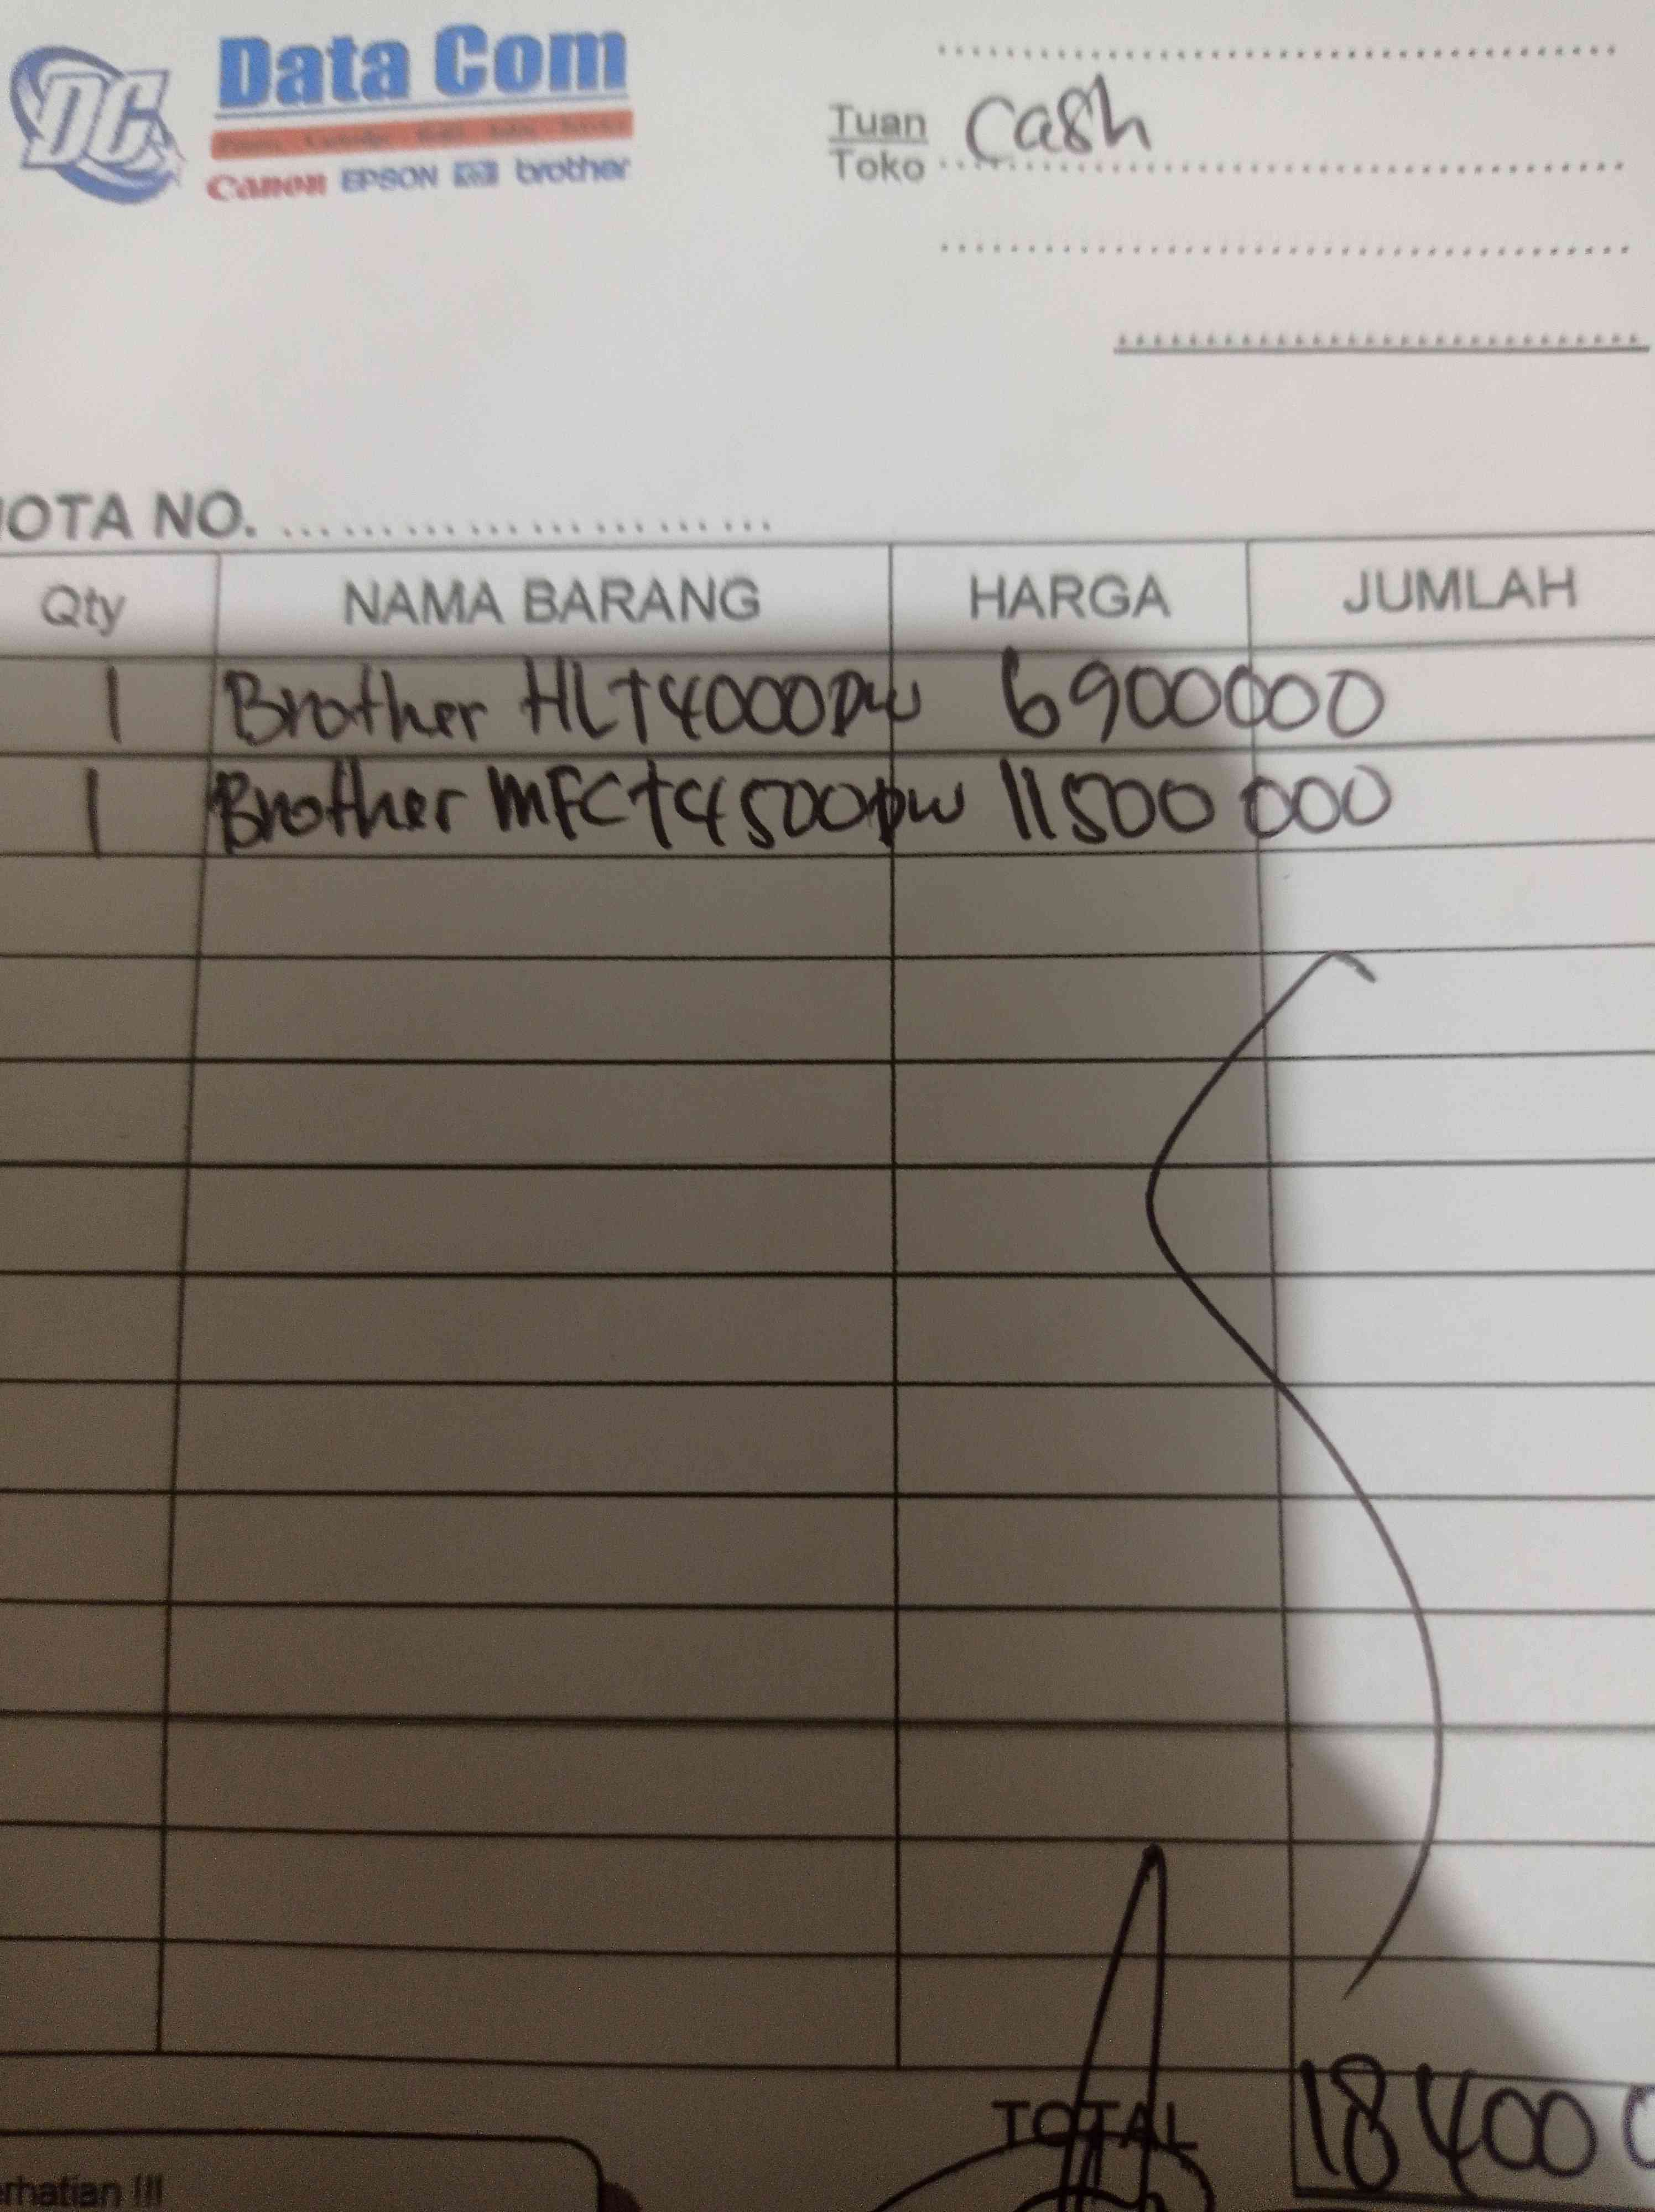 DC Data Com
Canon EPSON hp brother
Tuan Cash
Toko
OTA NO.
Qty NAMA BARANG HARGA JUMLAH
1 Brother HLT4000DW 6900000
1 Brother MFCT4500DW 11500 000
TOTAL 184000
erhatian !!!